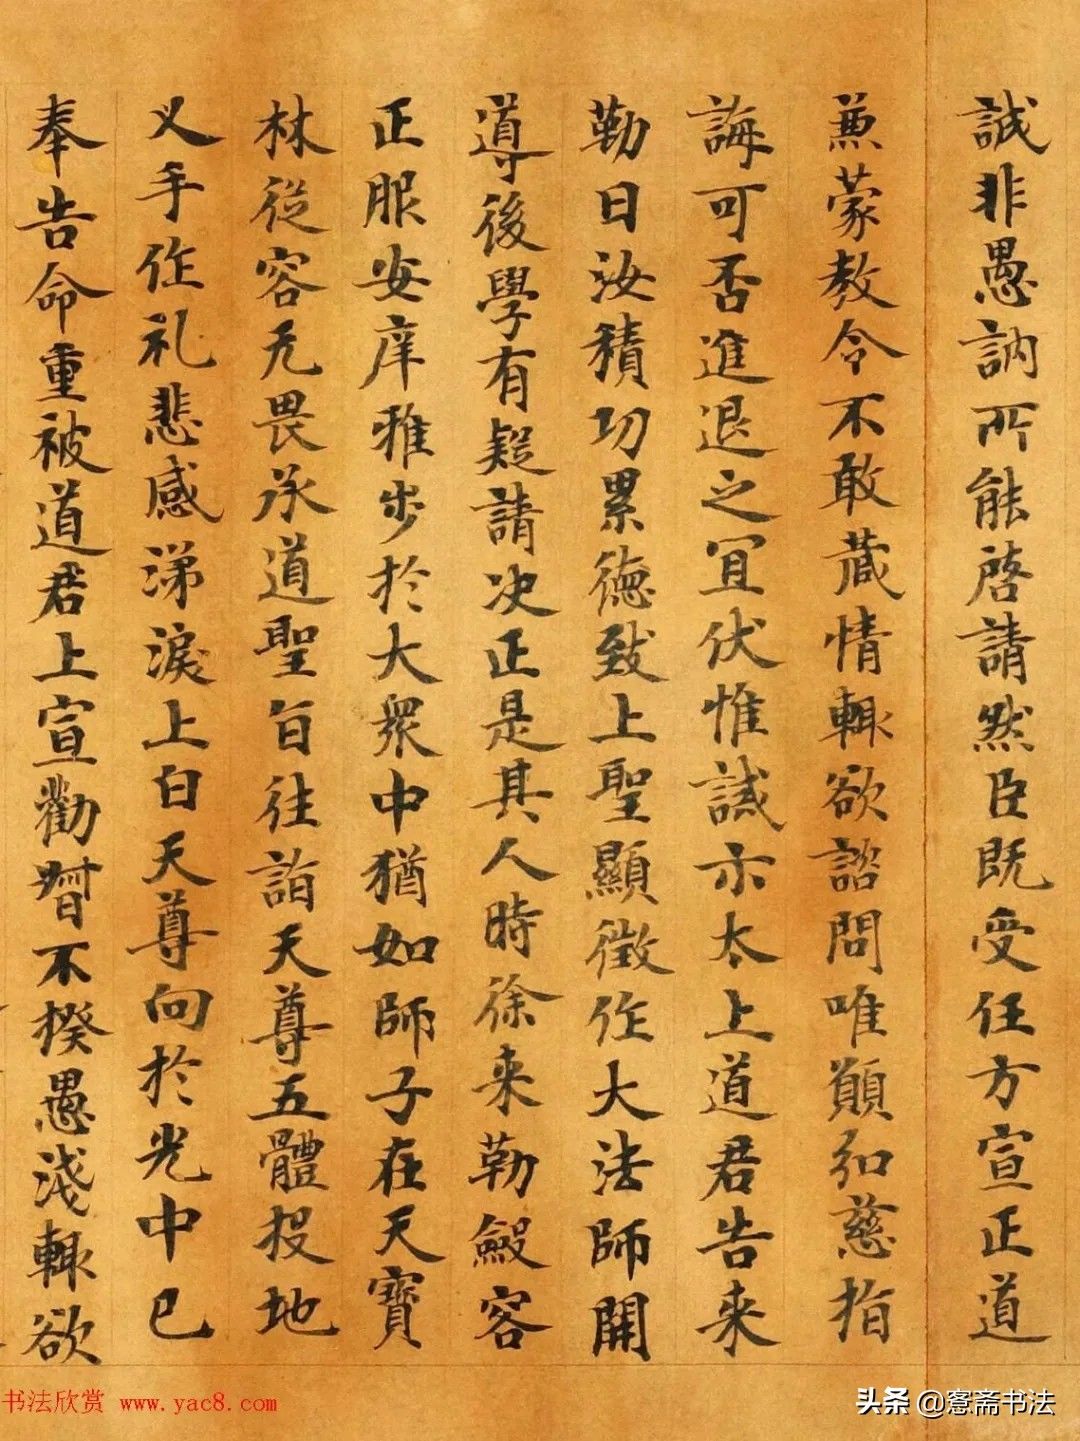 誠非愚訥所能啓請然臣既受任方宣正道
蒹蒙教令不敢蔵情輙欲諮問唯願弘慈指
誨可否進退之宜伏惟誡示太上道君告来
勒曰汝積功累徳致上聖顯徵作大法師開
導後學有疑請决正是其人時徐来勒斂容
正服安庠雅步於大衆中猶如師子在天寶
林從容无畏承道聖旨往詣天尊五體投地
叉手作礼悲感涕淚上白天尊向於光中已
奉告命重被道君上宣勸朁不揆愚淺輙欲
书法欣赏 www.yac8.com
头条 @窓斋书法